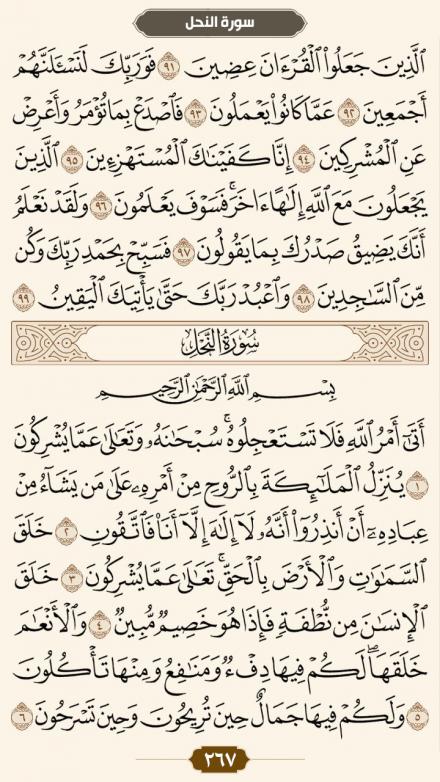 سورة النحل
ٱلَّذِينَ جَعَلُوا۟ ٱلْقُرْءَانَ عِضِينَ ٩١ فَوَرَبِّكَ لَنَسْـَٔلَنَّهُمْ
أَجْمَعِينَ ٩٢ عَمَّا كَانُوا۟ يَعْمَلُونَ ٩٣ فَٱصْدَعْ بِمَا تُؤْمَرُ وَأَعْرِضْ
عَنِ ٱلْمُشْرِكِينَ ٩٤ إِنَّا كَفَيْنَٰكَ ٱلْمُسْتَهْزِءِينَ ٩٥ ٱلَّذِينَ
يَجْعَلُونَ مَعَ ٱللَّهِ إِلَٰهًا ءَاخَرَ ۚ فَسَوْفَ يَعْلَمُونَ ٩٦ وَلَقَدْ نَعْلَمُ
أَنَّكَ يَضِيقُ صَدْرُكَ بِمَا يَقُولُونَ ٩٧ فَسَبِّحْ بِحَمْدِ رَبِّكَ وَكُن
مِّنَ ٱلسَّٰجِدِينَ ٩٨ وَٱعْبُدْ رَبَّكَ حَتَّىٰ يَأْتِيَكَ ٱلْيَقِينُ ٩٩
سُورَةُ النَّحْلِ
بِسْمِ ٱللَّهِ ٱلرَّحْمَٰنِ ٱلرَّحِيمِ
أَتَىٰٓ أَمْرُ ٱللَّهِ فَلَا تَسْتَعْجِلُوهُ ۚ سُبْحَٰنَهُۥ وَتَعَٰلَىٰ عَمَّا يُشْرِكُونَ
١ يُنَزِّلُ ٱلْمَلَٰٓئِكَةَ بِٱلرُّوحِ مِنْ أَمْرِهِۦ عَلَىٰ مَن يَشَآءُ مِنْ
عِبَادِهِۦٓ أَنْ أَنذِرُوٓا۟ أَنَّهُۥ لَآ إِلَٰهَ إِلَّآ أَنَا۠ فَٱتَّقُونِ ٢ خَلَقَ
ٱلسَّمَٰوَٰتِ وَٱلْأَرْضَ بِٱلْحَقِّ ۚ تَعَٰلَىٰ عَمَّا يُشْرِكُونَ ٣ خَلَقَ
ٱلْإِنسَٰنَ مِن نُّطْفَةٍ فَإِذَا هُوَ خَصِيمٌ مُّبِينٌ ٤ وَٱلْأَنْعَٰمَ
خَلَقَهَا ۗ لَكُمْ فِيهَا دِفْءٌ وَمَنَٰفِعُ وَمِنْهَا تَأْكُلُونَ
٥ وَلَكُمْ فِيهَا جَمَالٌ حِينَ تُرِيحُونَ وَحِينَ تَسْرَحُونَ ٦
٢٦٧